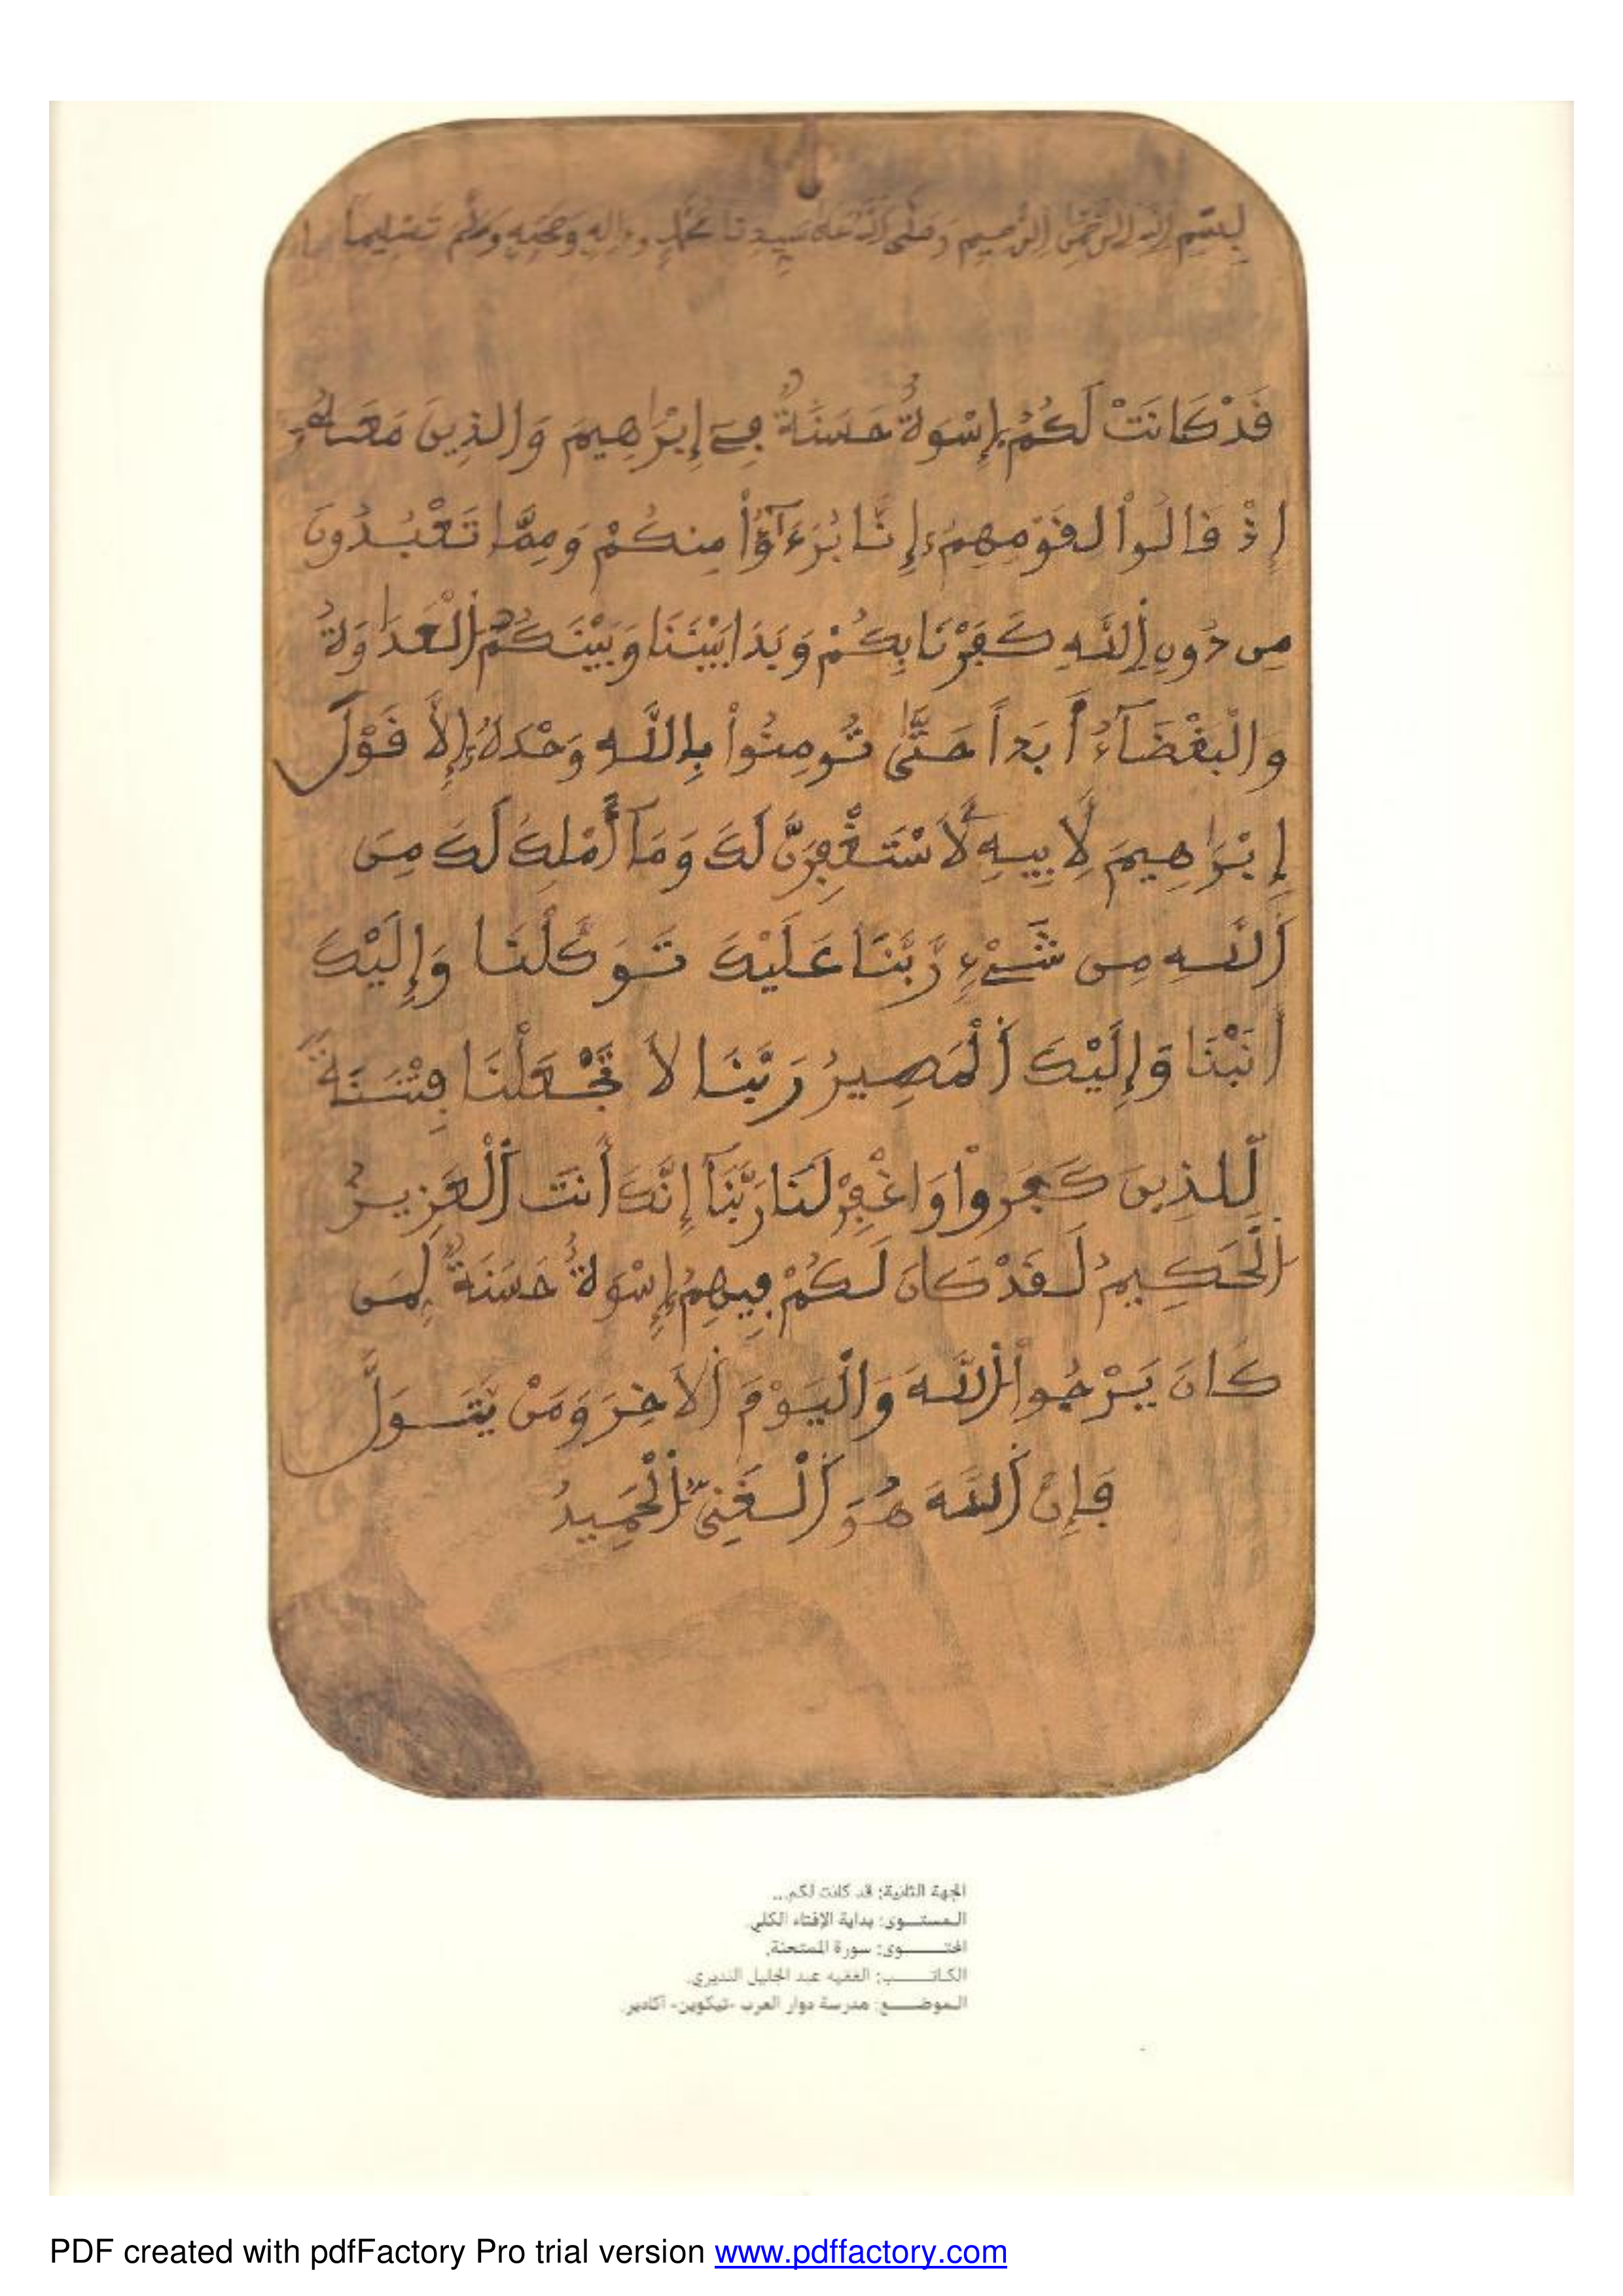 بِسْمِ اللَّهِ الرَّحْمَٰنِ الرَّحِيمِ وَصَلَّى اللَّهُ عَلَىٰ سَيِّدِنَا مُحَمَّدٍ وَءَالِهِ وَصَحْبِهِ وَسَلَّمَ تَسْلِيماً
فَدْ كَانَتْ لَكُمُ إِسْوَةٌ حَسَنَةٌ فِے إِبْرَٰهِيمَ وَالذِينَ مَعَهُ
إِذْ قَالُواْ لِقَوْمِهِمُ إِنَّا بُرَءَٰٓؤُاْ مِنكُمْ وَمِمَّا تَعْبُدُونَ
مِن دُونِ اِ۬للَّهِ كَفَرْنَا بِكُمْ وَبَدَا بَيْنَنَا وَبَيْنَكُمُ اُ۬لْعَدَٰوَةُ
وَالْبَغْضَآءُ أَبَداً حَتَّىٰ تُومِنُواْ بِاللَّهِ وَحْدَهُ إِلاَّ قَوْلَ
إِبْرَٰهِيمَ لِأَبِيهِ لَأَسْتَغْفِرَنَّ لَكَ وَمَآ أَمْلِكُ لَكَ مِنَ
اَ۬للَّهِ مِن شَےْءٍ رَّبَّنَا عَلَيْكَ تَوَكَّلْنَا وَإِلَيْكَ
أَنَبْنَا وَإِلَيْكَ اَ۬لْمَصِيرُ رَبَّنَا لاَ تَجْعَلْنَا فِتْنَةً
لِّلذِينَ كَفَرُواْ وَاغْفِرْ لَنَا رَبَّنَآ إِنَّكَ أَنتَ اَ۬لْعَزِيزُ
اُ۬لْحَكِيمُ لَقَدْ كَانَ لَكُمْ فِيهِمُ إِسْوَةٌ حَسَنَةٌ لِّمَن
كَانَ يَرْجُواْ اُ۬للَّهَ وَالْيَوْمَ اَ۬لاَخِرَ وَمَنْ يَّتَوَلَّ
فَإِنَّ اَ۬للَّهَ هُوَ اَ۬لْغَنِيُّ اُ۬لْحَمِيدُ
الجهة الثانية: قد كانت لكم...
المستوى: بداية الإفتاء الكلي.
المحتوى: سورة الممتحنة.
الكاتب: الفقيه عبد الجليل النديري.
الموضع: مدرسة دوار العرب -تيكوين- أكادير.
PDF created with pdfFactory Pro trial version www.pdffactory.com